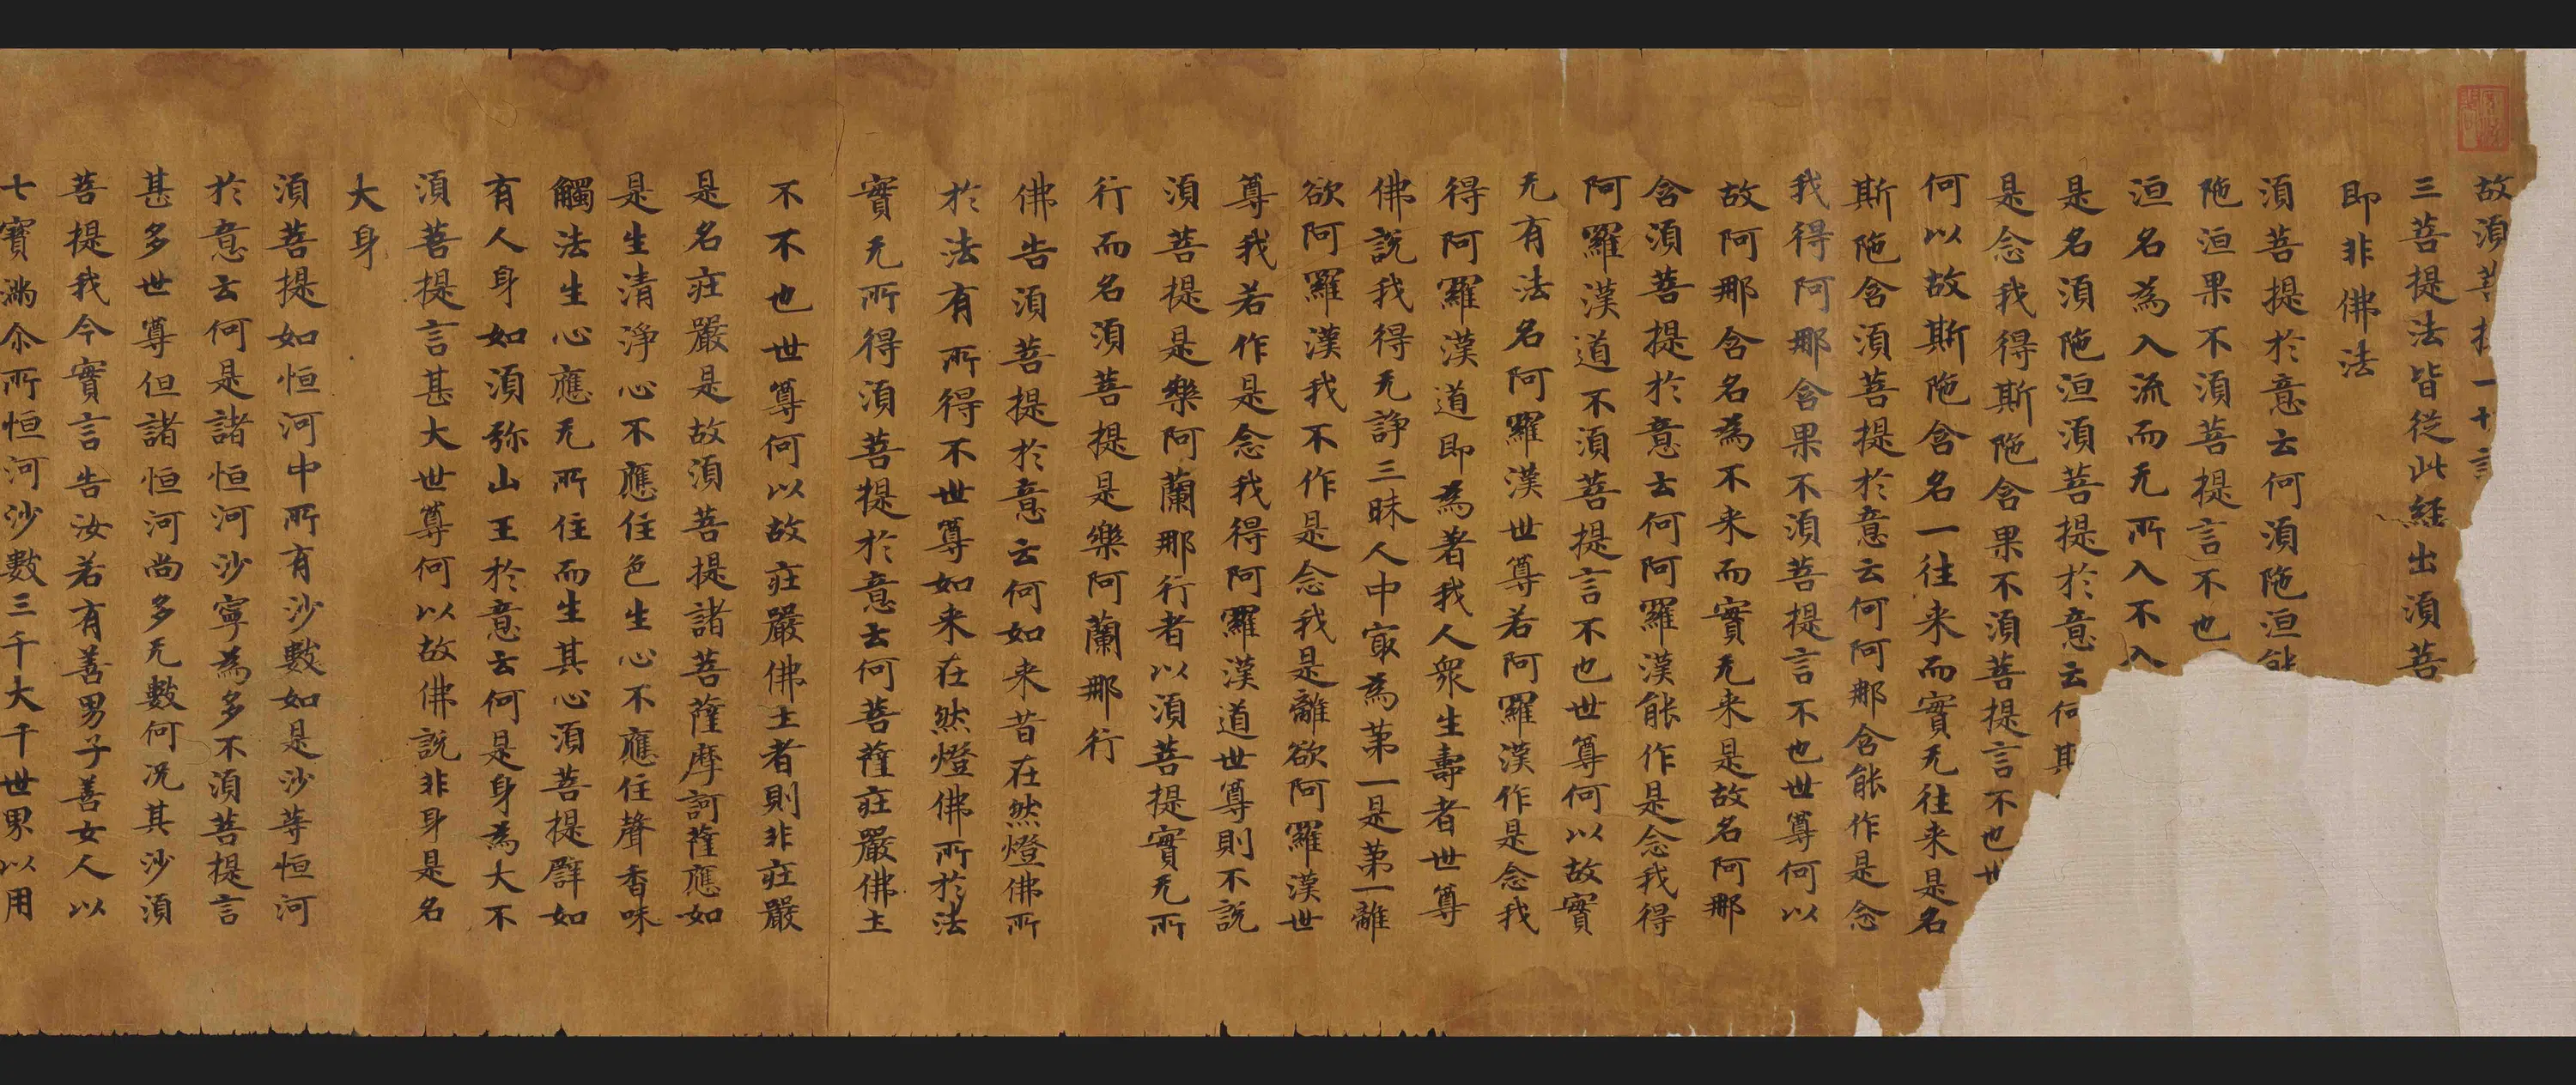 故須菩提一切諸
三菩提法皆從此經出須菩
即非佛法
須菩提於意云何須陁洹能
陁洹果不須菩提言不也
洹名為入流而无所入不入
是名須陁洹須菩提於意云何斯
是念我得斯陁含果不須菩提言不也世
何以故斯陁含名一往来而實无往来是名
斯陁含須菩提於意云何阿那含能作是念
我得阿那含果不須菩提言不也世尊何以
故阿那含名為不来而實无来是故名阿那
含須菩提於意云何阿羅漢能作是念我得
阿羅漢道不須菩提言不也世尊何以故實
无有法名阿羅漢世尊若阿羅漢作是念我
得阿羅漢道即為著我人衆生壽者世尊
佛說我得无諍三昧人中㝡為第一是第一離
欲阿羅漢我不作是念我是離欲阿羅漢世
尊我若作是念我得阿羅漢道世尊則不說
須菩提是樂阿蘭那行者以須菩提實无所
行而名須菩提是樂阿蘭那行
佛告須菩提於意云何如来昔在然燈佛所
於法有所得不世尊如来在然燈佛所於法
實无所得須菩提於意云何菩薩莊嚴佛土
不不也世尊何以故莊嚴佛土者則非莊嚴
是名莊嚴是故須菩提諸菩薩摩訶薩應如
是生清淨心不應住色生心不應住聲香味
觸法生心應无所住而生其心須菩提譬如
有人身如須弥山王於意云何是身為大不
須菩提言甚大世尊何以故佛說非身是名
大身
須菩提如恒河中所有沙數如是沙等恒河
於意云何是諸恒河沙寧為多不須菩提言
甚多世尊但諸恒河尚多无數何况其沙須
菩提我今實言告汝若有善男子善女人以
七寳滿尒所恒河沙數三千大千世界以用